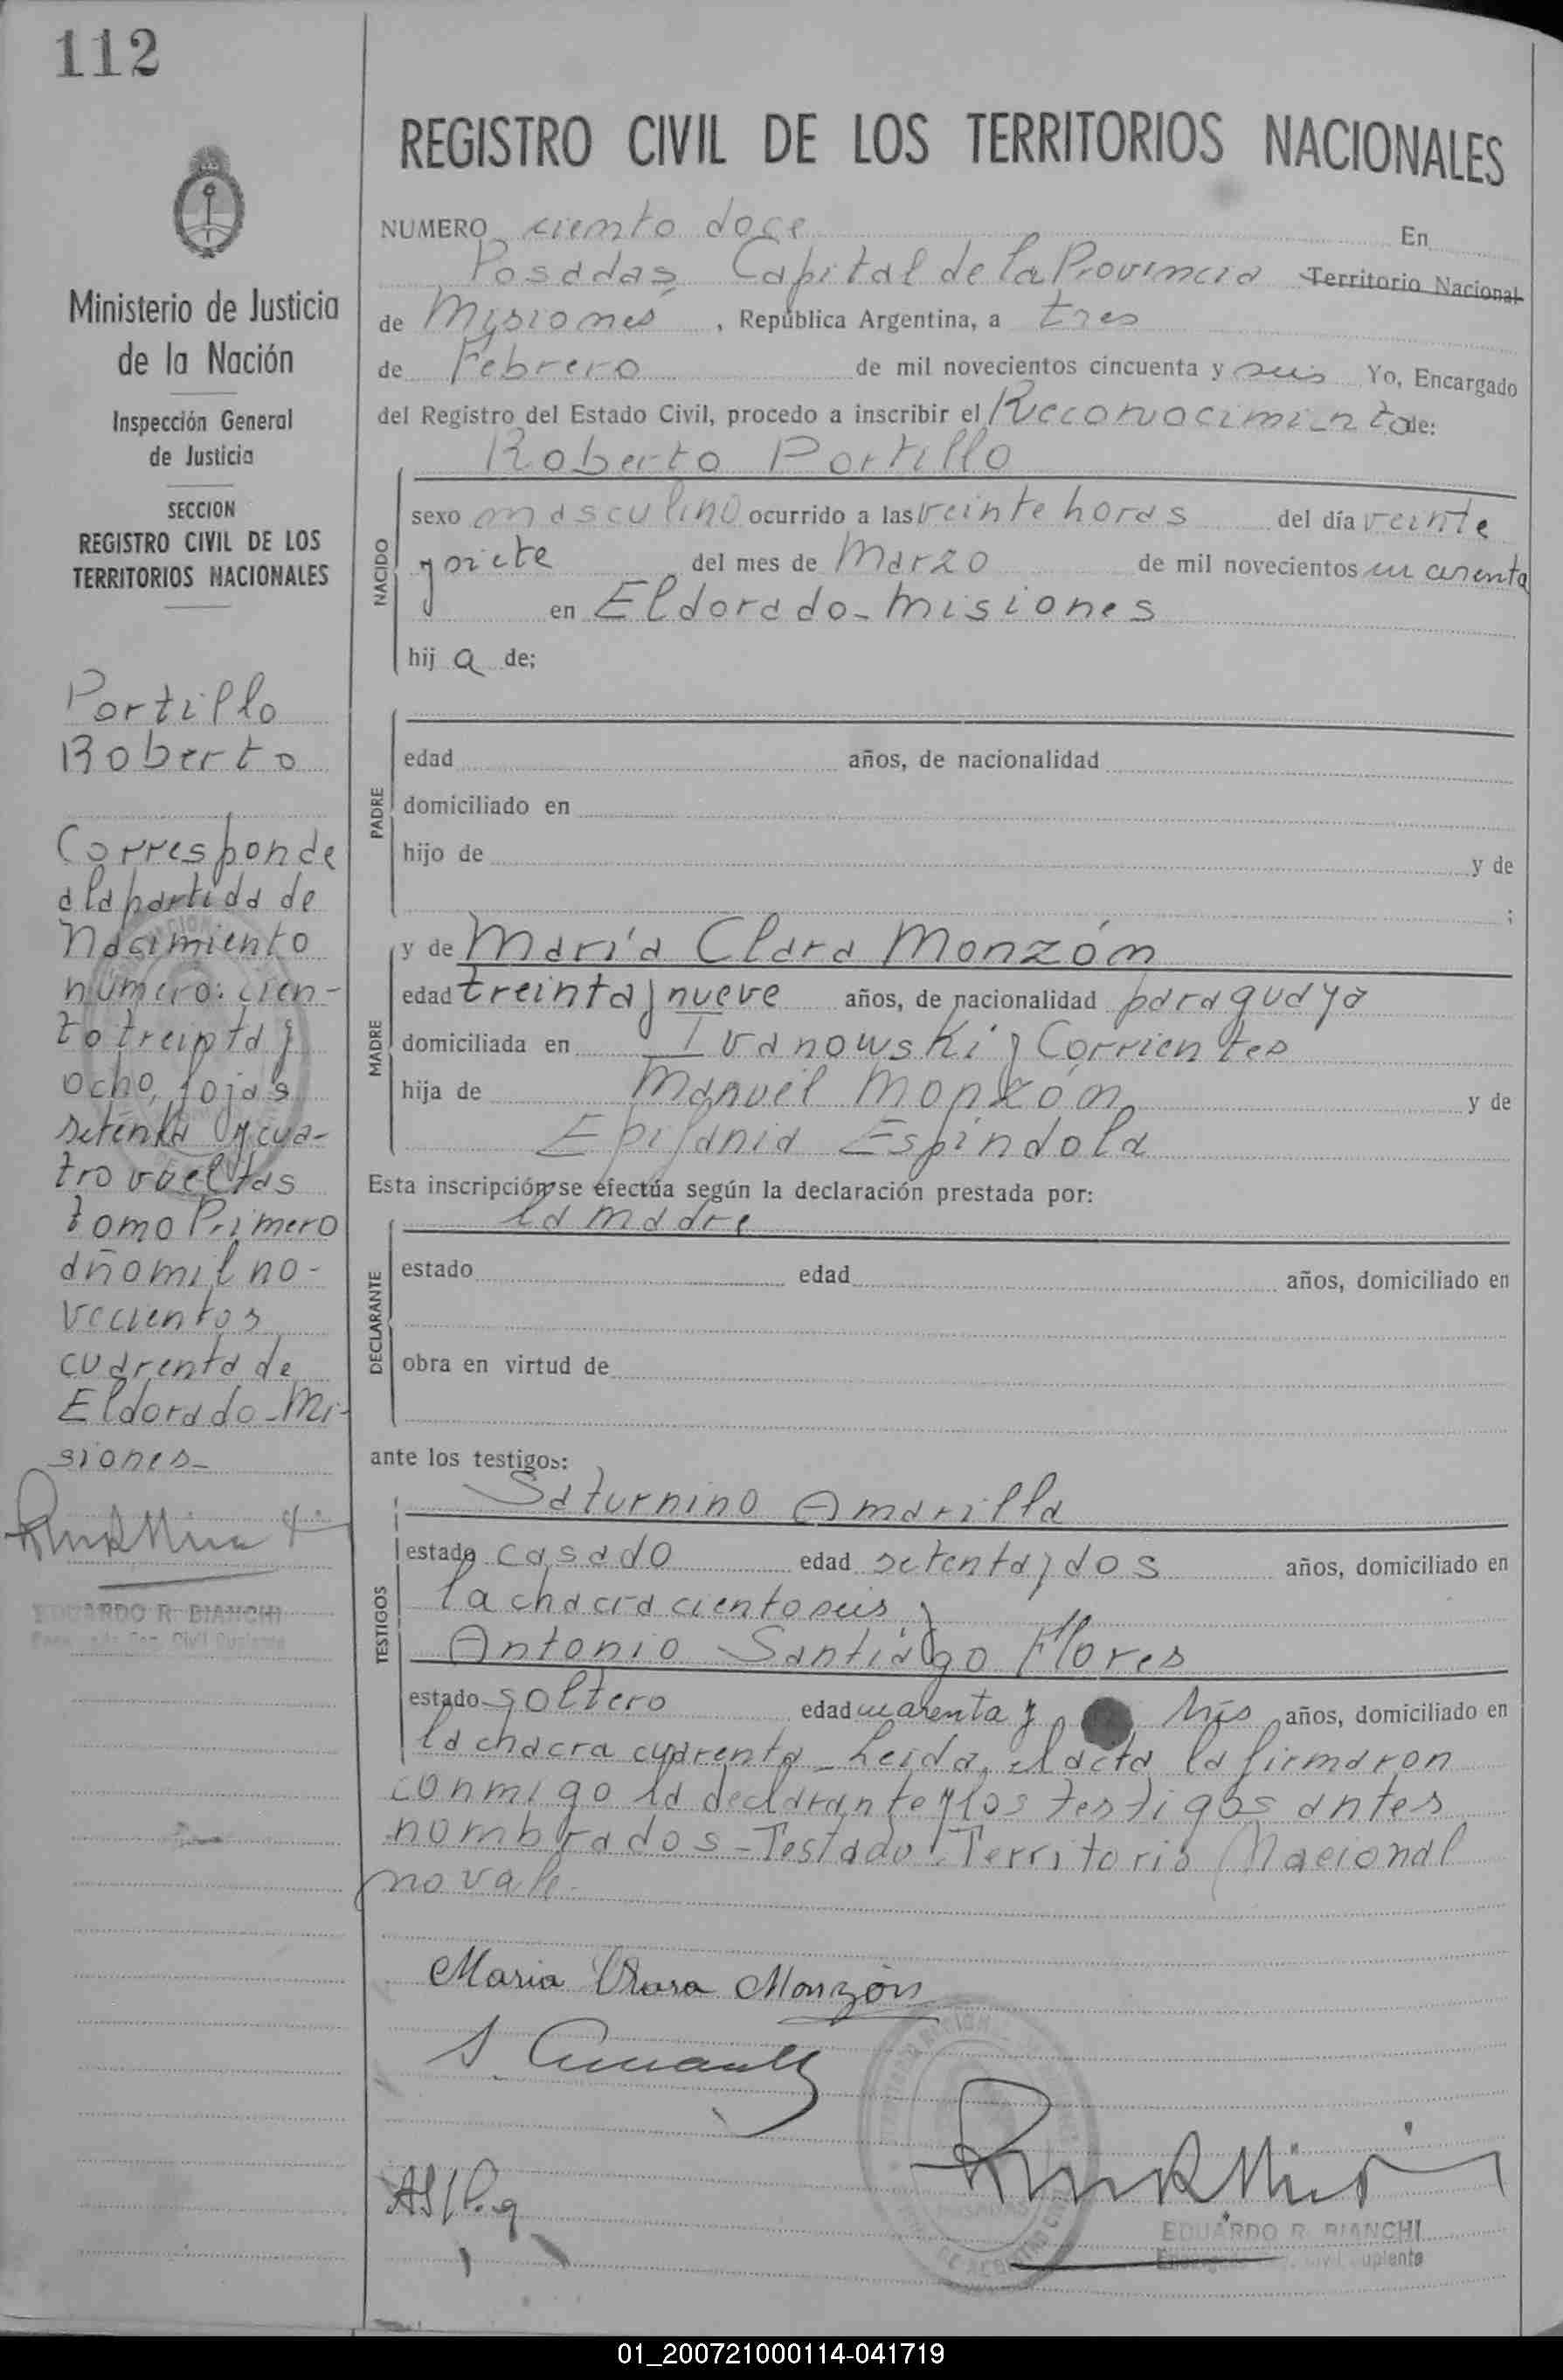 112
Ministerio de Justicia
de la Nación
Inspección General
de Justicia
SECCION
REGISTRO CIVIL DE LOS
TERRITORIOS NACIONALES
Portillo
Roberto
Corresponde
a la partida de
Nacimiento
número: cien-
to treinta y
ocho, fojas
setenta y cua-
tro vueltas
tomo Primero
año mil no-
vecientos
cuarenta de
Eldorado-Mi-
siones-
EDUARDO R. BIANCHI
REGISTRO CIVIL DE LOS TERRITORIOS NACIONALES
NUMERO ciento doce En
Posadas, Capital de la Provincia Territorio Nacional
de Misiones, República Argentina, a tres
de Febrero de mil novecientos cincuenta y seis Yo, Encargado
del Registro del Estado Civil, procedo a inscribir el Reconocimiento de:
Roberto Portillo
NACIDO
sexo masculino ocurrido a las veinte horas del día veinte
y siete del mes de Marzo de mil novecientos cuarenta
en Eldorado-Misiones
hij a de;
PADRE
edad años, de nacionalidad
domiciliado en
hijo de y de
;
MADRE
y de María Clara Monzón
edad treinta y nueve años, de nacionalidad paraguaya
domiciliada en Ivanowski y Corrientes
hija de Manuel Monzón y de
Epifania Espíndola
Esta inscripción se efectúa según la declaración prestada por:
la madre
DECLARANTE
estado edad años, domiciliado en
obra en virtud de
ante los testigos:
TESTIGOS
Saturnino Amarilla
estado casado edad setenta y dos años, domiciliado en
la chacra ciento seis y
Antonio Santiago Flores
estado soltero edad cuarenta y tres años, domiciliado en
la chacra cuarenta- Leida, el acta la firmaron
conmigo la declarante y los testigos antes
nombrados-Testado: Territorio Nacional
no vale-
Maria Clara Monzón
EDUARDO R. BIANCHI
01_200721000114-041719